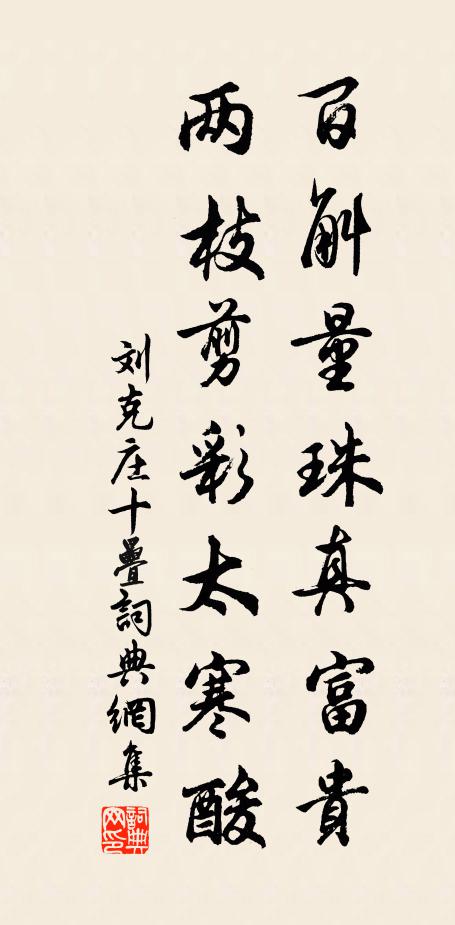 百斛量珠真富貴
两枝剪彩太寒酸
刘克庄十疊詞典網集
詞典網印